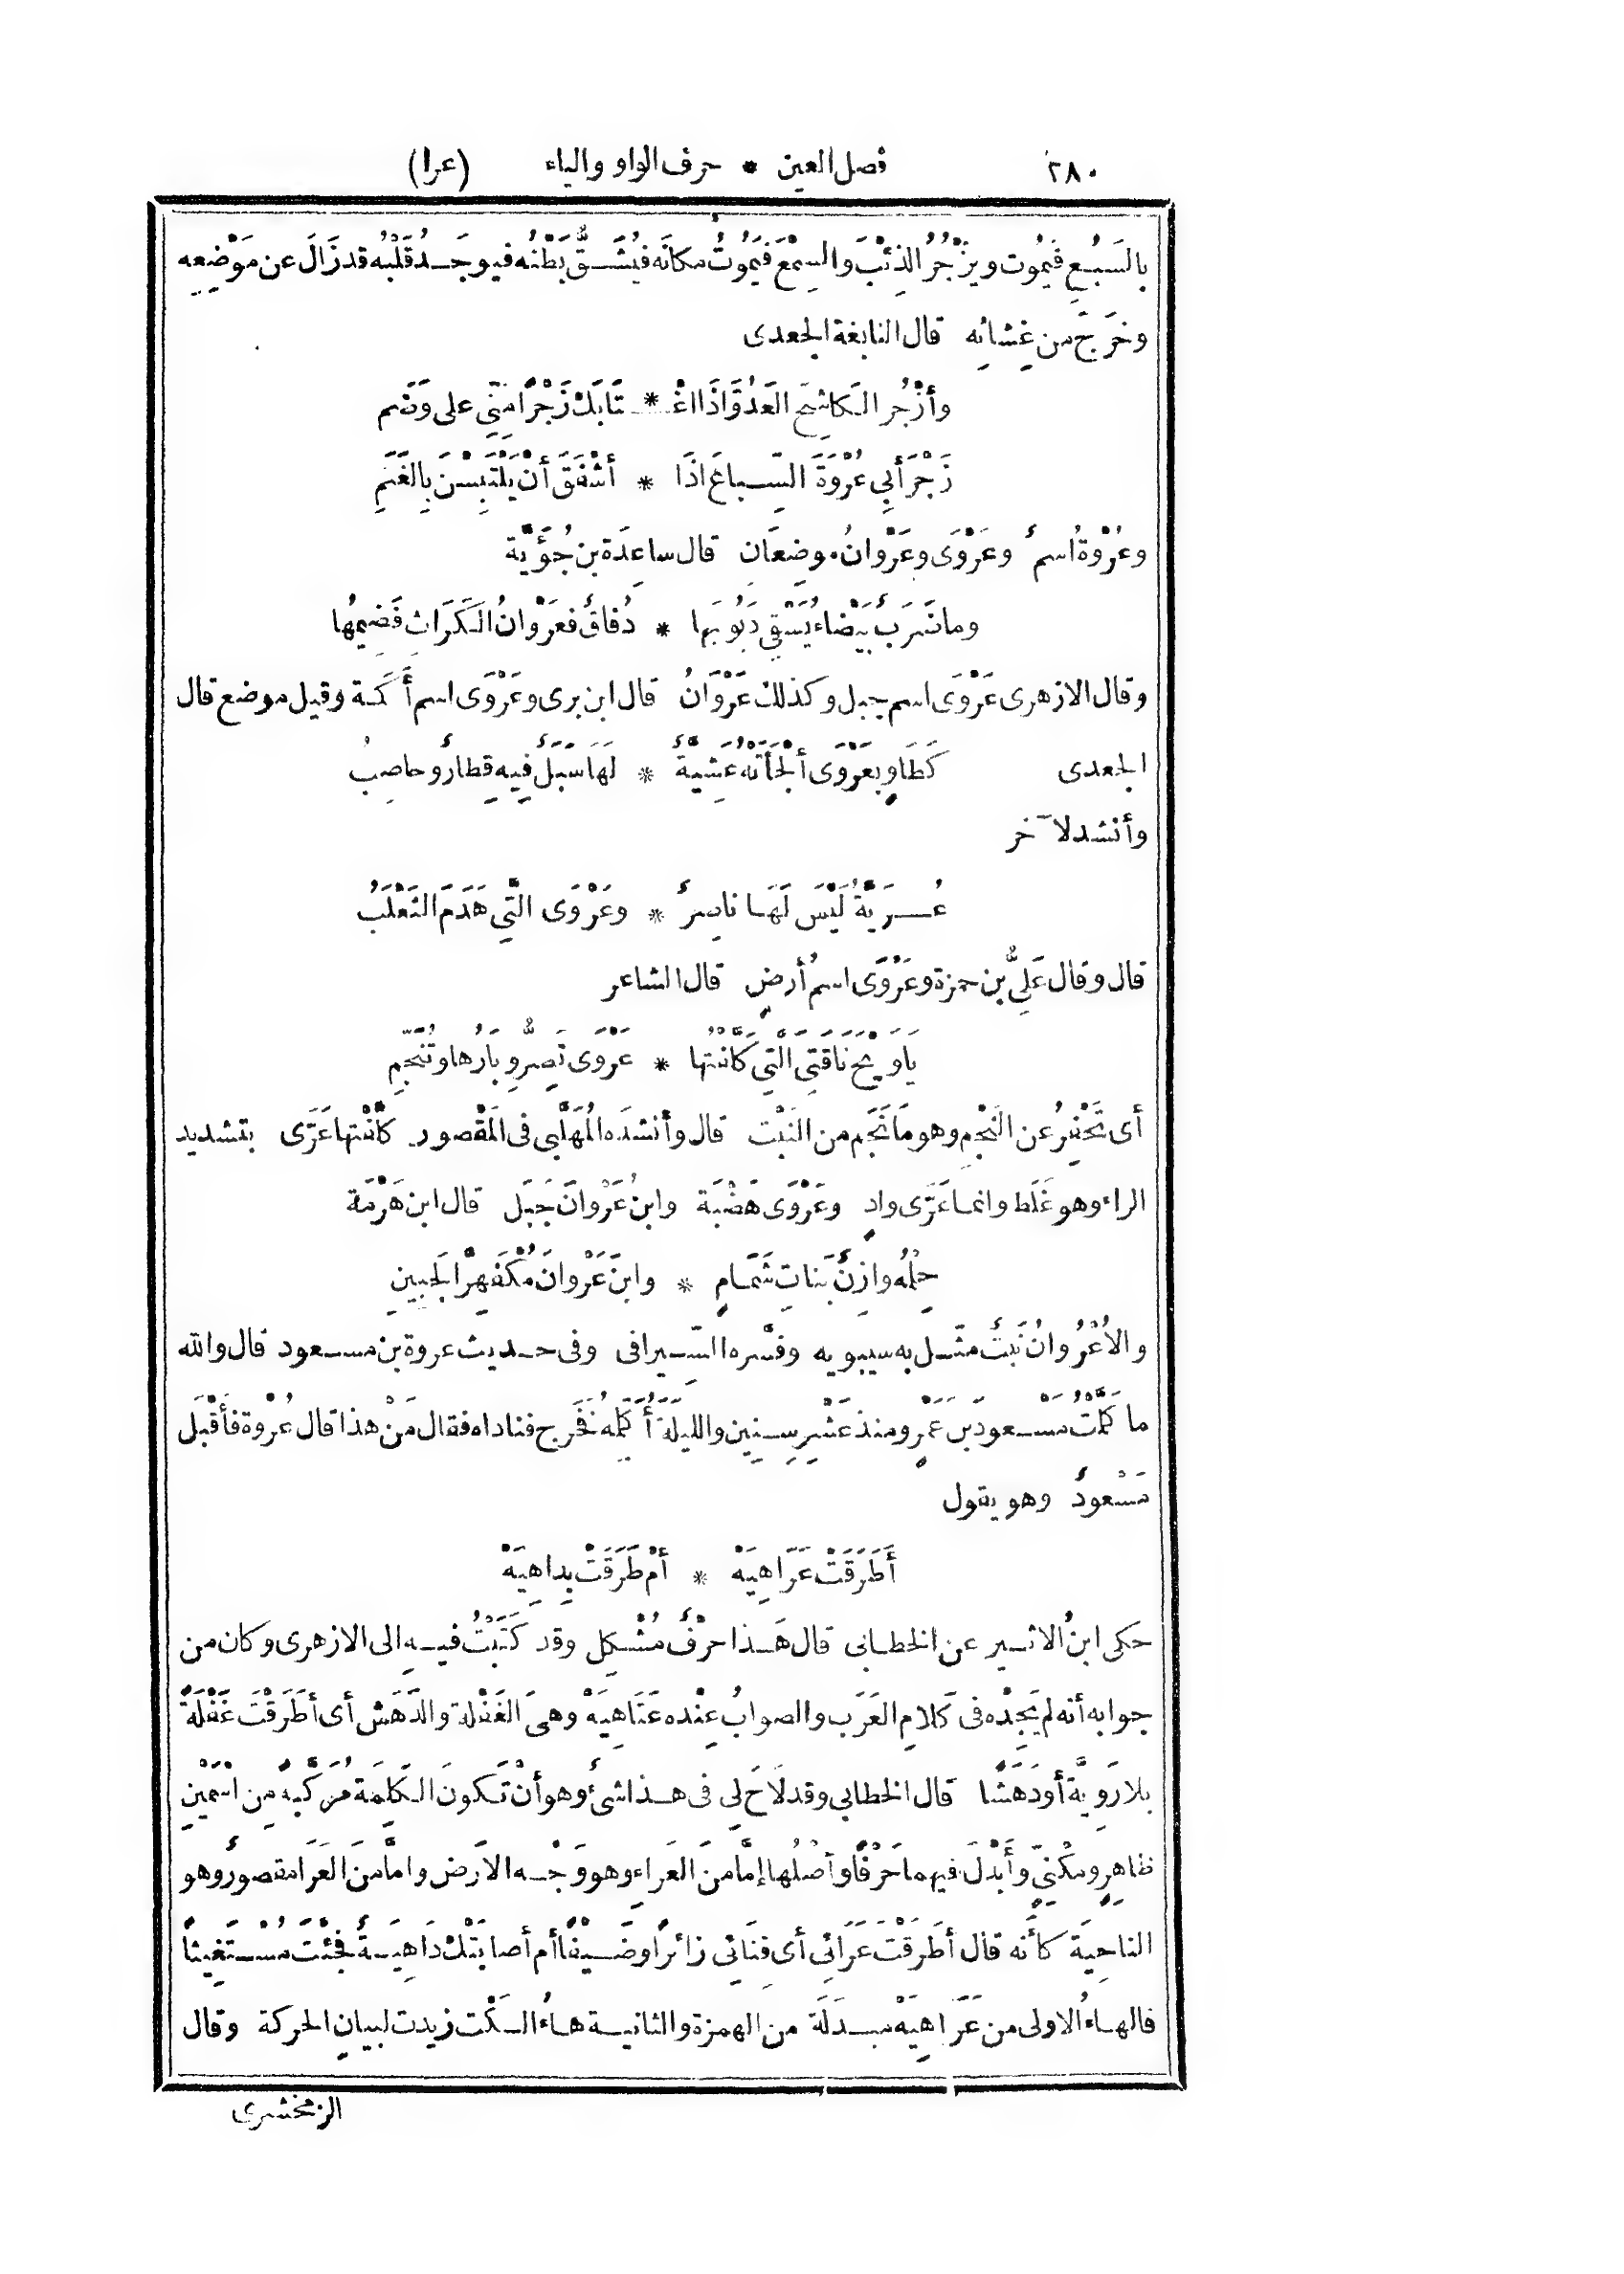 ٢٨٠ فصل العين * حرف الواو والياء (عرا)
بالسَبُعِ فَيَمُوت ويَزْجُرُ الذِئْبَ والسِمْعَ فَيَمُوتُ مكانَه فيُشَقُّ بَطْنُه فيوجَدُ قَلْبُه قد زَالَ عن مَوْضِعِه
وخَرَجَ من غِشائِه قال النابغة الجعدى
وأَزْجُر الكاشِحَ العَدُوَّ اذَا اغْـ * ـتَابَكَ زَجْرًا مِنِّي على وَضَم
زَجْرَ أَبِي عُرْوَةَ السِّباعَ اذَا * أَشْفَقَ أَنْ يَلْتَبِسْنَ بِالغَنَمِ
وعُرْوةُ اسمٌ وعَرْوَى وعَرْوانُ موضِعَان قال ساعِدَة بن جُؤَيَّة
وما ضَرَبٌ بَيْضاءُ يَسْقِي دَبُوبَها * دُفاقٌ فعَرْوانُ الكَرَاثِ فَضِيمُها
وقال الازهرى عَرْوَى اسم جبل وكذلك عَرْوَانُ قال ابن برى وعَرْوَى اسم أَكَمة وقيل موضع قال
الجعدى كَطَاوٍ بعَرْوَى أَلْجَأَتْه عَشِيَّةٌ * لَهَا سَبَلٌ فِيهِ قِطارٌ وحاصِبُ
وأنشد لآخر
عُرَيَّةُ لَيْسَ لَهَا ناصِرٌ * وعَرْوَى التَّي هَدَمَ الثَعْلَبُ
قال وقال عَلِيُّ بن حمزة وعَرْوَى اسمُ أَرضٍ قال الشاعر
يَاوَيْحَ نَاقَتِي الَّتِي كَلَّفْتُها * عَرْوَى تَصِرُّ وِبَارُها وتُنَجِّمِ
أى تَحْفِرُ عن النَجْمِ وهو مَا نَجَم من النَبْت قال وأنشدَه المُهَلَّبي فى المَقْصور كَلَّفْتُها عَرَّى بتشديد
الراء وهو غَلَط وانما عَرَّى وادٍ وعَرْوَى هَضْبَة وابنُ عَرْوانَ جَبَل قال ابن هَرْمَة
حِلْمُه وازِنٌ بَناتِ شَمَامٍ * وابنَ عَرْوانَ مُكْفَهِرَّ الجَبِينِ
والأُعْرُوانُ نَبْتٌ مثّل به سيبويه وفسّره السِّيرافى وفى حديث عروة بن مسعود قال والله
ما كَلَّمْتُ مَسْعودَ بنَ عَمْرٍو منذ عَشْرِ سِنِين والليلةَ أُكَلِّمُه فَخَرج فناداه فقال مَنْ هذا قال عُرْوة فأَقْبَل
مَسْعودٌ وهو يقول
أَطَرَقَتْ عَرَاهِيَهْ * أَمْ طَرَقَتْ بِداهِيَهْ
حكى ابنُ الاثير عن الخطابى قال هَذا حرْفٌ مُشْكِل وقد كَتَبْتُ فيهِ الى الازهرى وكان من
جوابه أنه لم يَجِدْه فى كَلامِ العَرَب والصوابُ عِنْده عَتَاهِيَهْ وهى الغَفْلة والدَّهَش أى أَطَرَقْتَ غَفْلَةً
بلا رَوِيَّة أو دَهَشًا قال الخطابى وقد لَاحَ لِي فى هذا شئٌ وهو أَنْ تَكونَ الكَلِمَة مُرَكَّبةً مِن اسْمَيْنِ
ظاهِرٍ ومَكْنِيٍّ وأَبْدَلَ فيهما حَرْفًا وأَصْلُها إمَّا منَ العَراءِ وهو وَجْه الارَض وامَّا منَ العَرَا مقصورٌ وهو
الناحِيَة كأَنه قال أَطَرَقْتَ عَرَائِى أى فِنَائِى زائرًا وضَيْفًا أم أصابَتْكَ دَاهِيَةٌ فجِئْتَ مُسْتَغِيثًا
فالهاءُ الاولى من عَرَاهِيَهْ مبدَلَة من الهمزة والثانية هاءُ السَكْت زيدت لبيانِ الحركة وقال
الزمخشرى